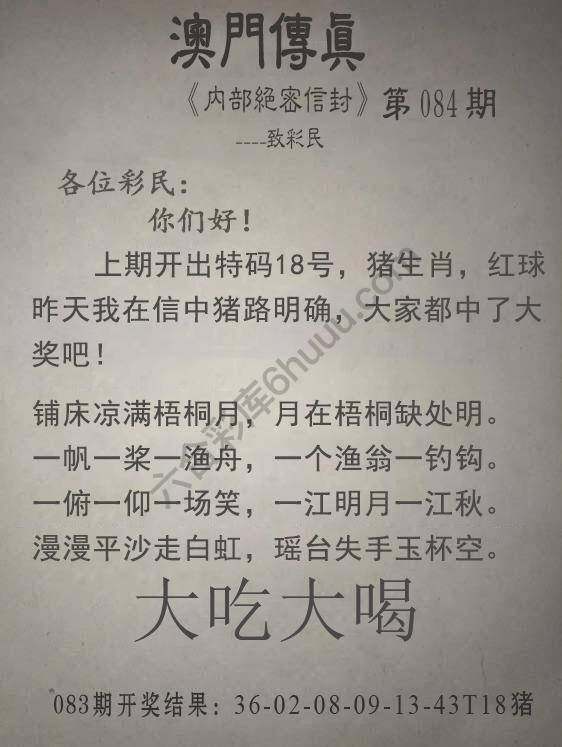 澳門傳真
《内部絕密信封》第084期
----致彩民
各位彩民：
你们好！
上期开出特码18号，猪生肖，红球
昨天我在信中猪路明确，大家都中了大
奖吧！
铺床凉满梧桐月，月在梧桐缺处明。
一帆一桨一渔舟，一个渔翁一钓钩。
一俯一仰一场笑，一江明月一江秋。
漫漫平沙走白虹，瑶台失手玉杯空。
大吃大喝
083期开奖结果：36-02-08-09-13-43T18猪
六合彩库6huuu.com